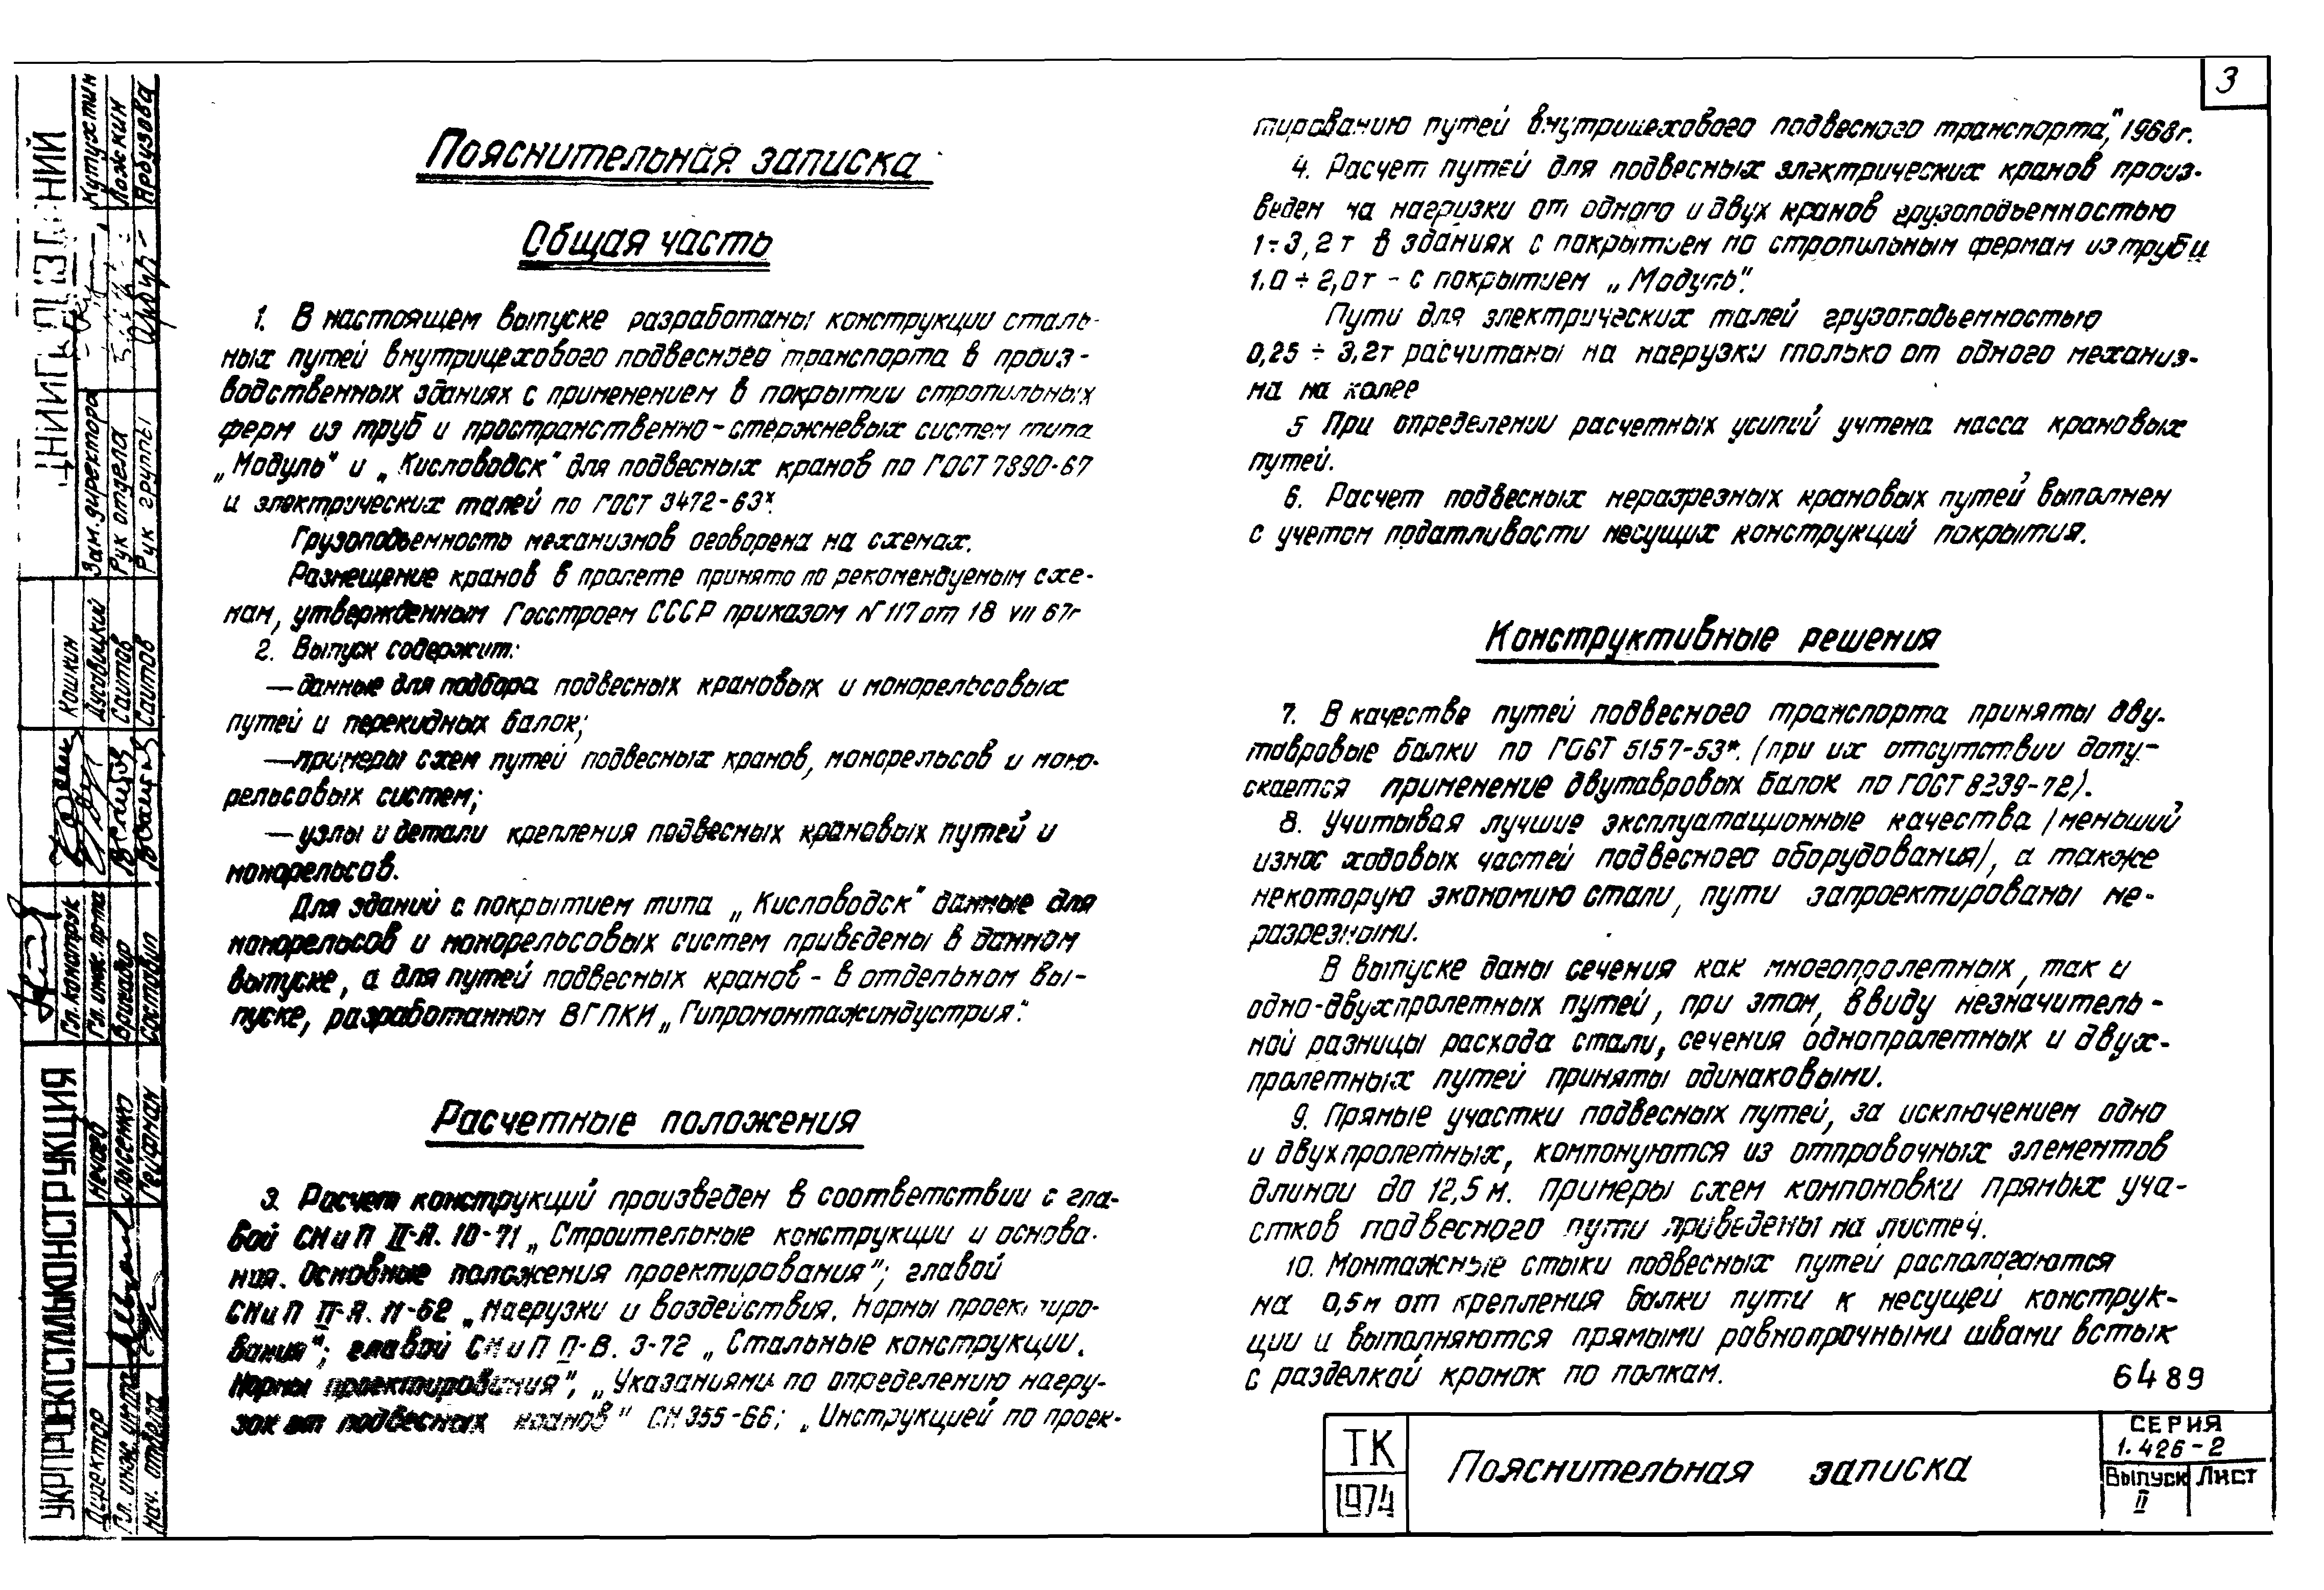 3
Пояснительная записка
Общая часть
1. В настоящем выпуске разработаны конструкции сталь-
ных путей внутрицехового подвесного транспорта в произ-
водственных зданиях с применением в покрытии стропильных
ферм из труб и пространственно-стержневых систем типа
„Модуль" и „Кисловодск" для подвесных кранов по ГОСТ 7890-67
и электрических талей по ГОСТ 3472-63ˣ.
Грузоподъемность механизмов оговорена на схемах.
Размещение кранов в пролете принято по рекомендуемым схе-
мам, утвержденным Госстроем СССР приказом №117 от 18 VII 67г
2. Выпуск содержит:
— данные для подбора подвесных крановых и монорельсовых
путей и перекидных балок;
— примеры схем путей подвесных кранов, монорельсов и моно-
рельсовых систем;
— узлы и детали крепления подвесных крановых путей и
монорельсов.
Для зданий с покрытием типа „Кисловодск" данные для
монорельсов и монорельсовых систем приведены в данном
выпуске, а для путей подвесных кранов - в отдельном вы-
пуске, разработанном ВГПКИ „Гипромонтажиндустрия".
Расчетные положения
3. Расчет конструкций произведен в соответствии с гла-
вой СНиП II-А. 10-71 „Строительные конструкции и основа-
ния. Основные положения проектирования"; главой
СНиП II-А. 11-62 „Нагрузки и воздействия. Нормы проектиро-
вания"; главой СНиП II-В. 3-72 „Стальные конструкции.
Нормы проектирования", „Указаниями по определению нагру-
зок от подвесных кранов" СН 355-66; „Инструкцией по проек-
тированию путей внутрицехового подвесного транспорта", 1968г.
4. Расчет путей для подвесных электрических кранов произ-
веден на нагрузки от одного и двух кранов грузоподъемностью
1÷3,2т в зданиях с покрытием по стропильным фермам из труб и
1.0÷2,0т - с покрытием „Модуль".
Пути для электрических талей грузоподъемностью
0,25 ÷ 3,2т расчитаны на нагрузки только от одного механиз-
ма на колее
5 При определении расчетных усилий учтена масса крановых
путей.
6. Расчет подвесных неразрезных крановых путей выполнен
с учетом податливости несущих конструкций покрытия.
Конструктивные решения
7. В качестве путей подвесного транспорта приняты дву-
тавровые балки по ГОСТ 5157-53*. (при их отсутствии допу-
скается применение двутавровых балок по ГОСТ 8239-72).
8. Учитывая лучшие эксплуатационные качества /меньший
износ ходовых частей подвесного оборудования/, а также
некоторую экономию стали, пути запроектированы не-
разрезными.
В выпуске даны сечения как многопролетных, так и
одно-двухпролетных путей, при этом, ввиду незначитель-
ной разницы расхода стали, сечения однопролетных и двух-
пролетных путей приняты одинаковыми.
9. Прямые участки подвесных путей, за исключением одно
и двухпролетных, компонуются из отправочных элементов
длиной до 12,5 м. Примеры схем компоновки прямых уча-
стков подвесного пути приведены на листеч.
10. Монтажные стыки подвесных путей располагаются
на 0,5м от крепления балки пути к несущей конструк-
ции и выполняются прямыми равнопрочными швами встык
с разделкой кромок по полкам.
6489
ТК
1974
Пояснительная записка
СЕРИЯ
1.426-2
Выпуск Лист
II
Кутухтин
Ложкин
Арбузова
Зам. директора
Рук отдела
Рук группы
Кошкин
Дусавицкий
Саитов
Саитов
Гл. конструк
Гл. инж. пр-та
Бригадир
Составил
УКРПРОЕКТСТАЛЬКОНСТРУКЦИЯ
Нечаев
Лысенко
Гейфман
Директор
Гл. инж. инта
Нач. отдела